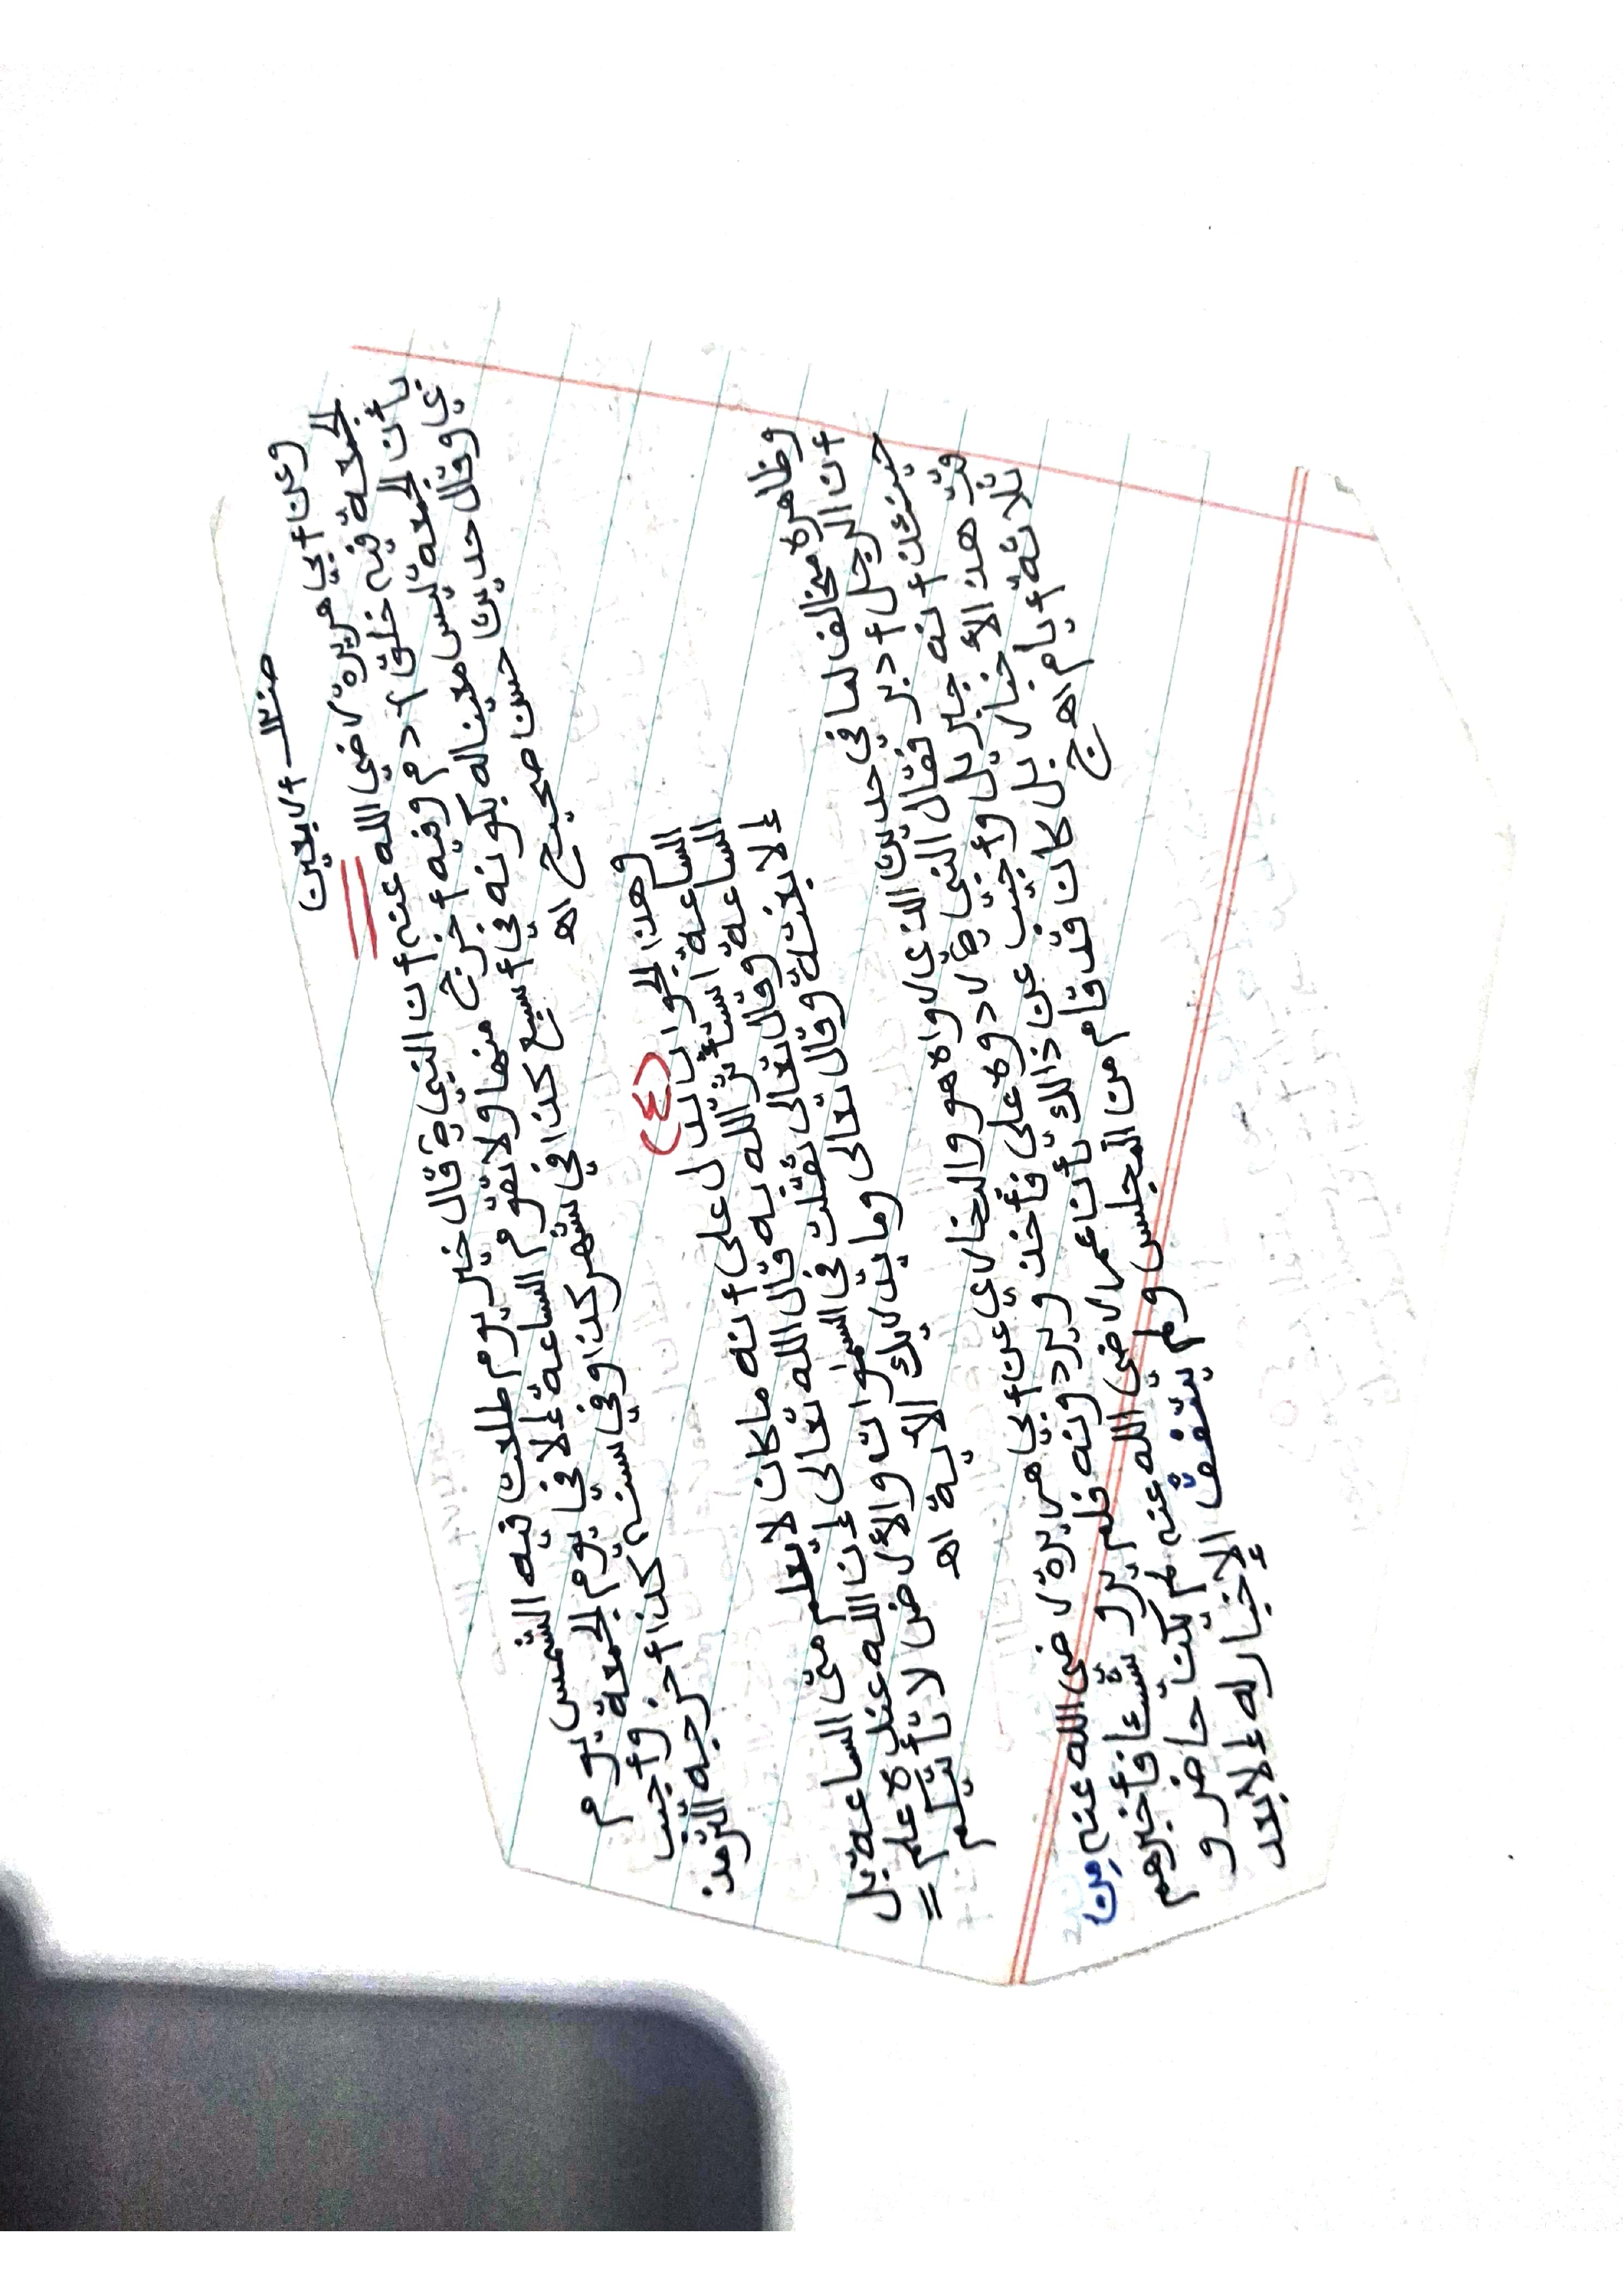 الاربعين
وعن أبي هريرة رضي الله عنه أن النبي ص قال خير يوم طلعت فيه الشمس يوم
الجمعة فيه خلق آدم وفيه أخرج منها ولا تقوم الساعة إلا في يوم الجمعة وأجيب
بأن الجمعة ليس معينا له بكونه في أسبع كذا في شهر كذا وفي سنه كذا أخرجه الترمذ
ي وقال حديث حسن صحيح اهـ
(٤)
وهذا الجواب يدل على أنه ما كان لا يعلم متى الساعة بل
الساعة استأثر الله به قال الله تعالى إن الله عنده علم =
الساعة وقال تعالى ثقلت في السموات والأرض لا تأتيكم
إلا بغتة وقال تعالى وما يدريك الأية اهـ
وظاهره مخالف لما في حديث الذي رواه هو والبخاري عن أبي هريرة رضى الله عنه من
أن الرجل أدبر فقال النبي ص ردوه على فأخذو يردونه فلم يرو شئا فأخبرهم
حينئذ أنه جبريل وأجيب عن ذالك بأن عمر رضي الله عنه لم يكن حاضر و
قت هذا الأخبار بل كان قد قام من المجلس ولم يتفق الإخبار له إلا بعد
ثلاثة أيام اهـ ج